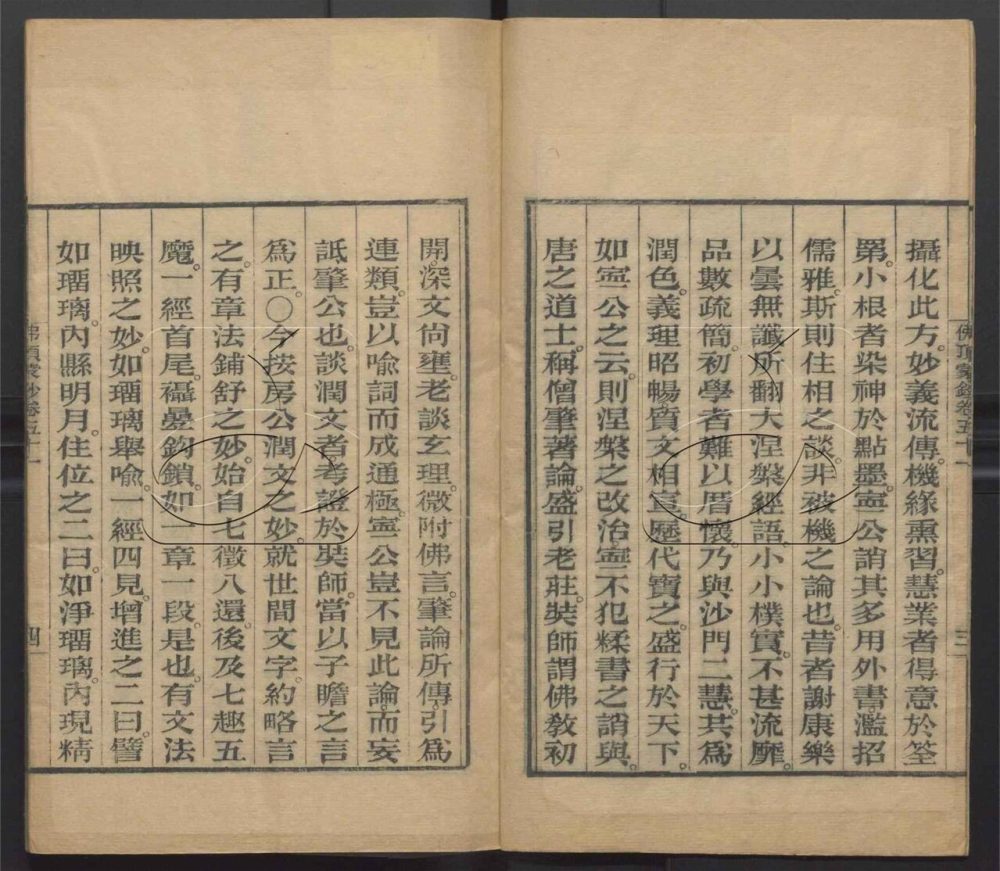 佛頂蒙鈔卷五十一
三
攝化此方。妙義流傳。機緣熏習。慧業者得意於筌
第。小根者染神於點墨。寧公誚其多用外書。濫招
儒雅。斯則住相之談。非被機之論也。昔者謝康樂
以曇無讖所翻大涅槃經語小小樸實。不甚流靡。
品數疏簡。初學者難以厝懷。乃與沙門二慧。共為
潤色。義理昭暢。質文相宣。歷代寶之。盛行於天下。
如寧公之云。則涅槃之改治。寧不犯糅書之誚與。
唐之道士。稱僧肇著論。盛引老莊。奘師謂佛教初
開。深文尚壅。老談玄理。微附佛言。肇論所傳。引為
連類。豈以喻詞而成通極。寧公豈不見此論。而妄
詆肇公也。談潤文者。考證於奘師。當以子瞻之言
為正。〇今按房公潤文之妙。就世間文字。約略言
之。有章法鋪舒之妙。始自七徵八還。後及七趣五
魔。一經首尾。襵疊鈎鎖。如一章一段。是也。有文法
映照之妙。如瑠璃舉喻。一經四見。增進之二曰。譬
如瑠璃。內懸明月。住位之二曰。如淨瑠璃。內現精
佛頂蒙鈔卷五十一
四